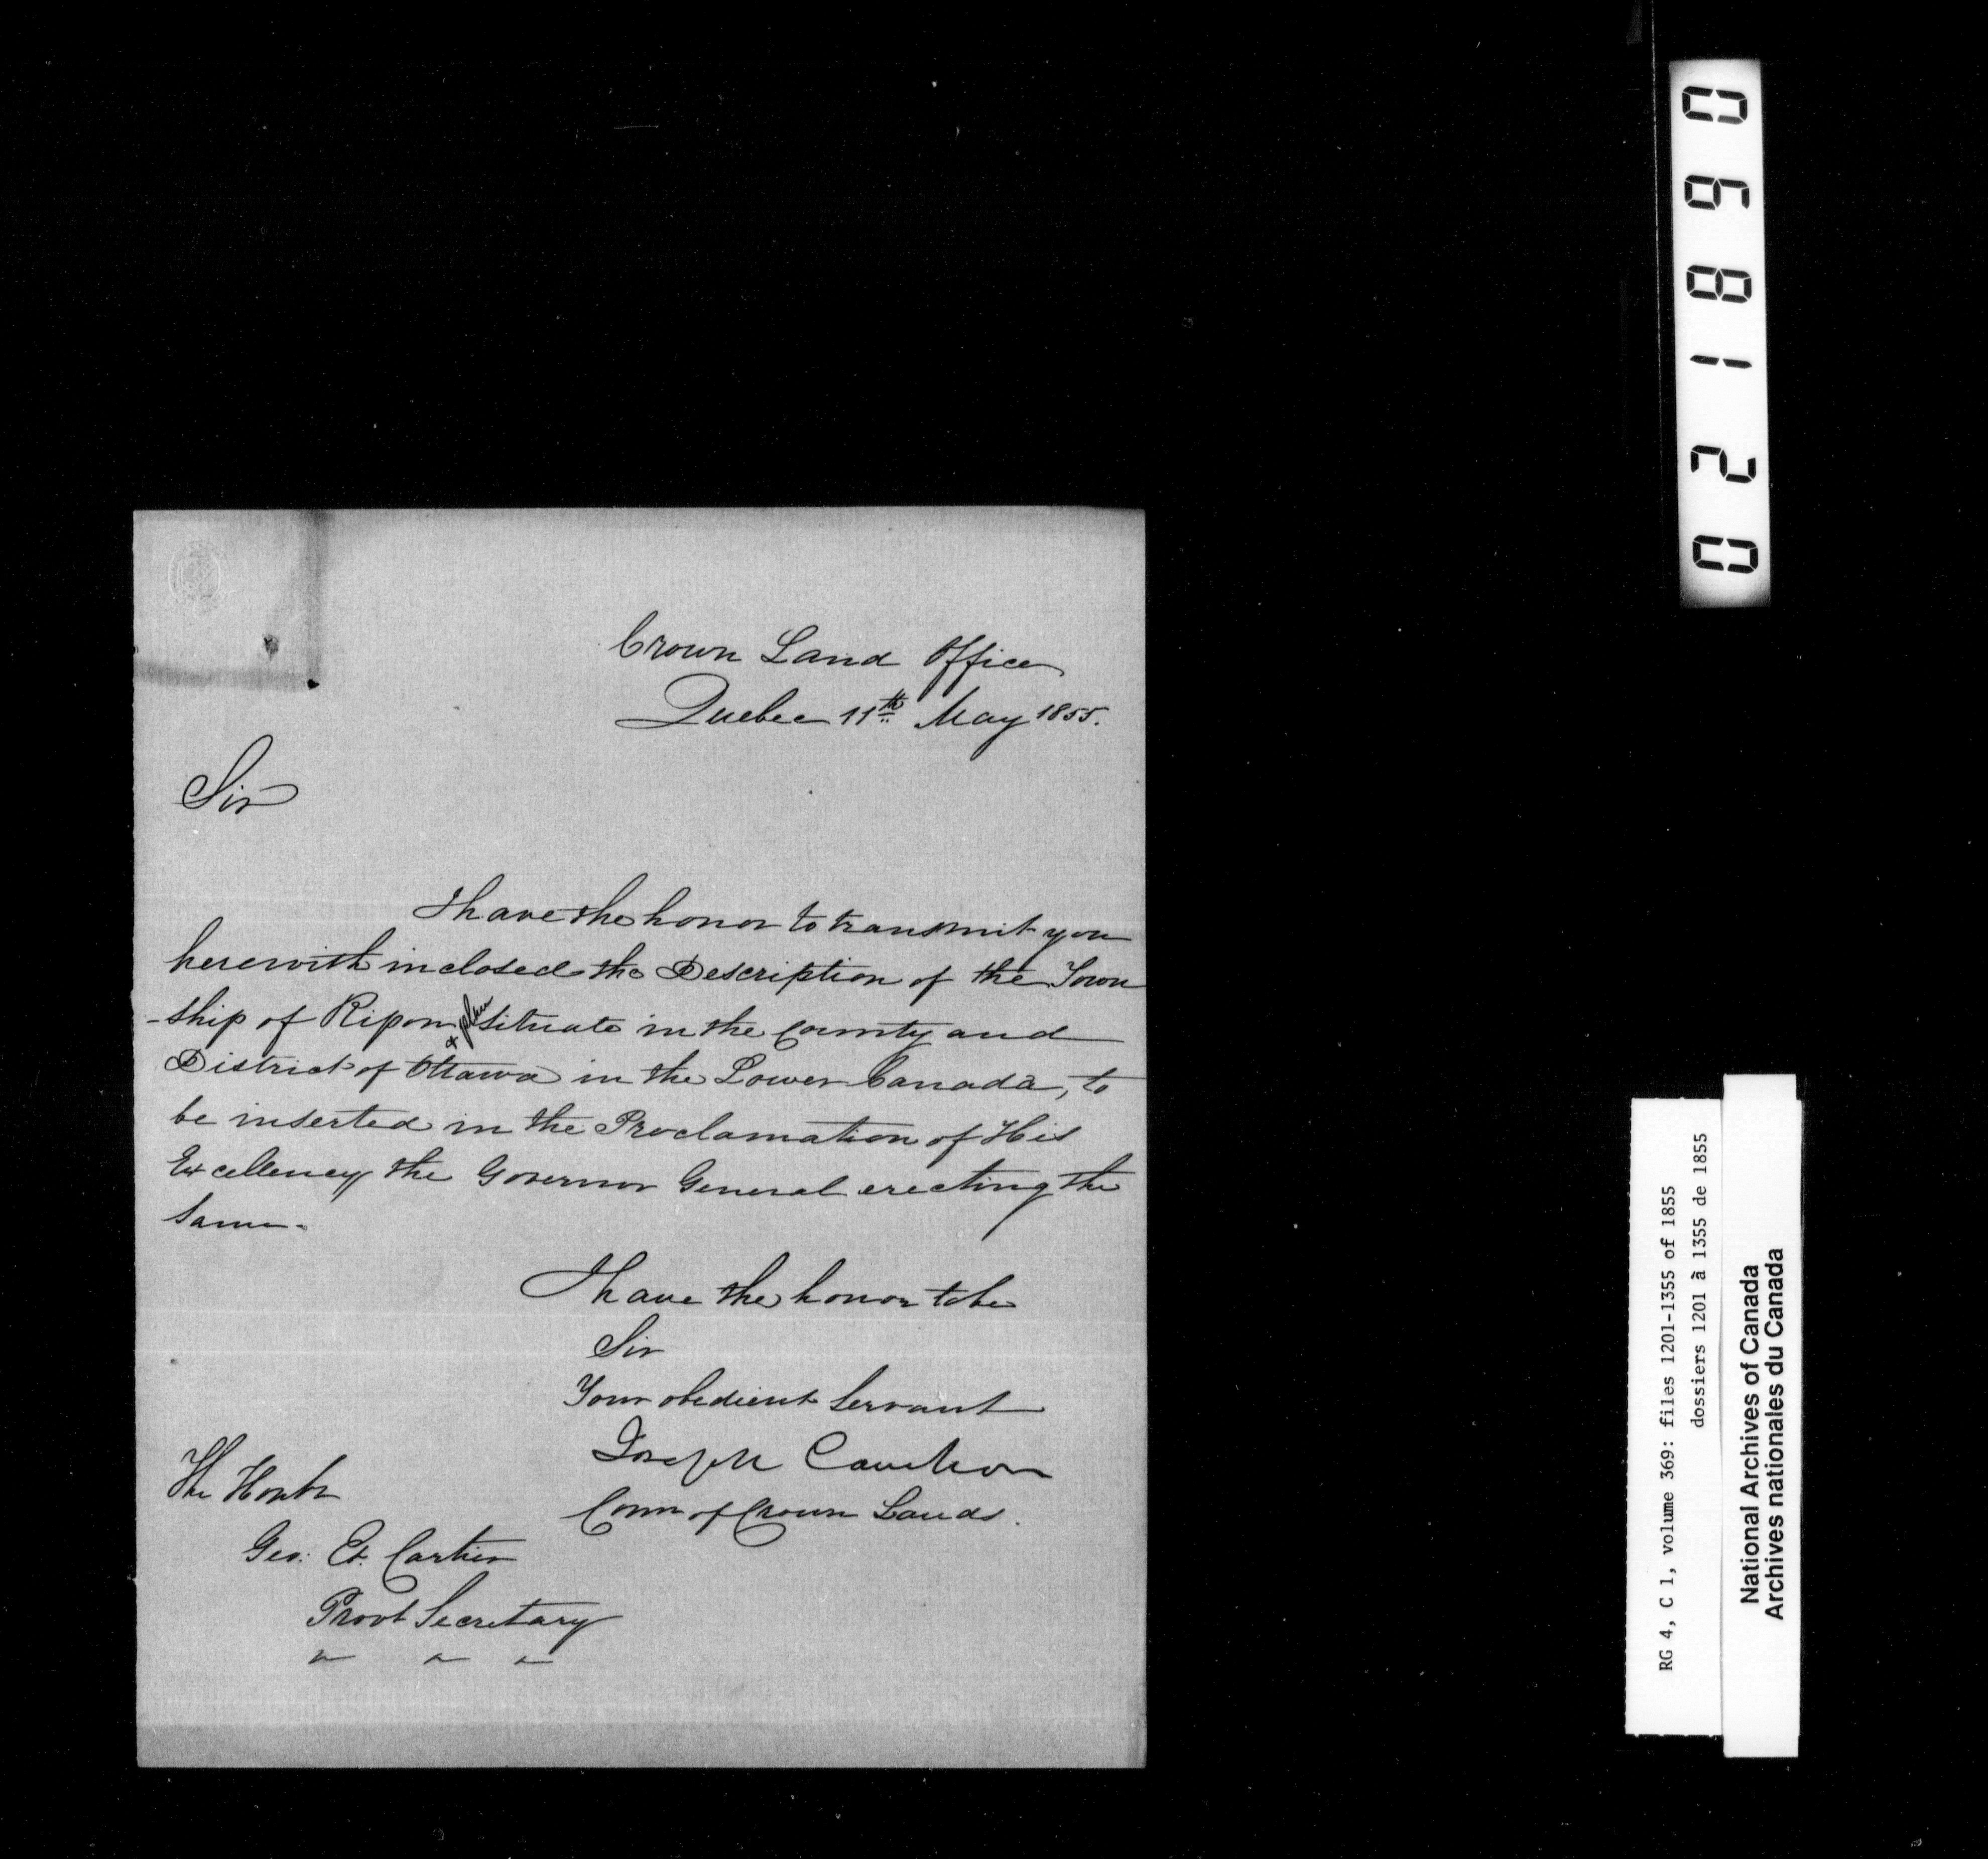 Crown Land Office
Quebec 11th May 1855.
Sir
I have the honor to transmit you
herewith inclosed the Description of the Town
-ship of Ripon & plan situate in the County and
District of Ottawa in the Lower Canada, to
be inserted in the Proclamation of His
Excellency the Governor General erecting the
same.
I have the honor to be
Sir
Your obedient Servant
Joseph Cauchon
Comr of Crown Lands.
The Honble
Geo: Et. Cartier
Provl Secretary
" " "
021890
RG 4, C 1, volume 369: files 1201-1355 of 1855
dossiers 1201 à 1355 de 1855
National Archives of Canada
Archives nationales du Canada